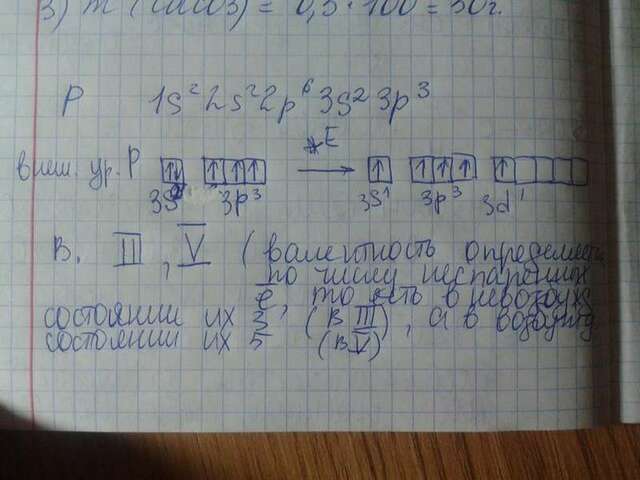 3) m (CaCO3) = 0,5 · 100 = 50г.
P 1s² 2s² 2p⁶ 3s² 3p³
внеш. ур. P ↑↓ ↑ ↑ ↑ *E → ↑ ↑ ↑ ↑ ↑
3s² 3p³ 3s¹ 3p³ 3d¹
В. III, V (валентность определяется
по числу неспаренных
ē, то есть в невозбужд
состоянии их 3 (В III), а в возбужд
состоянии их 5 (В V)